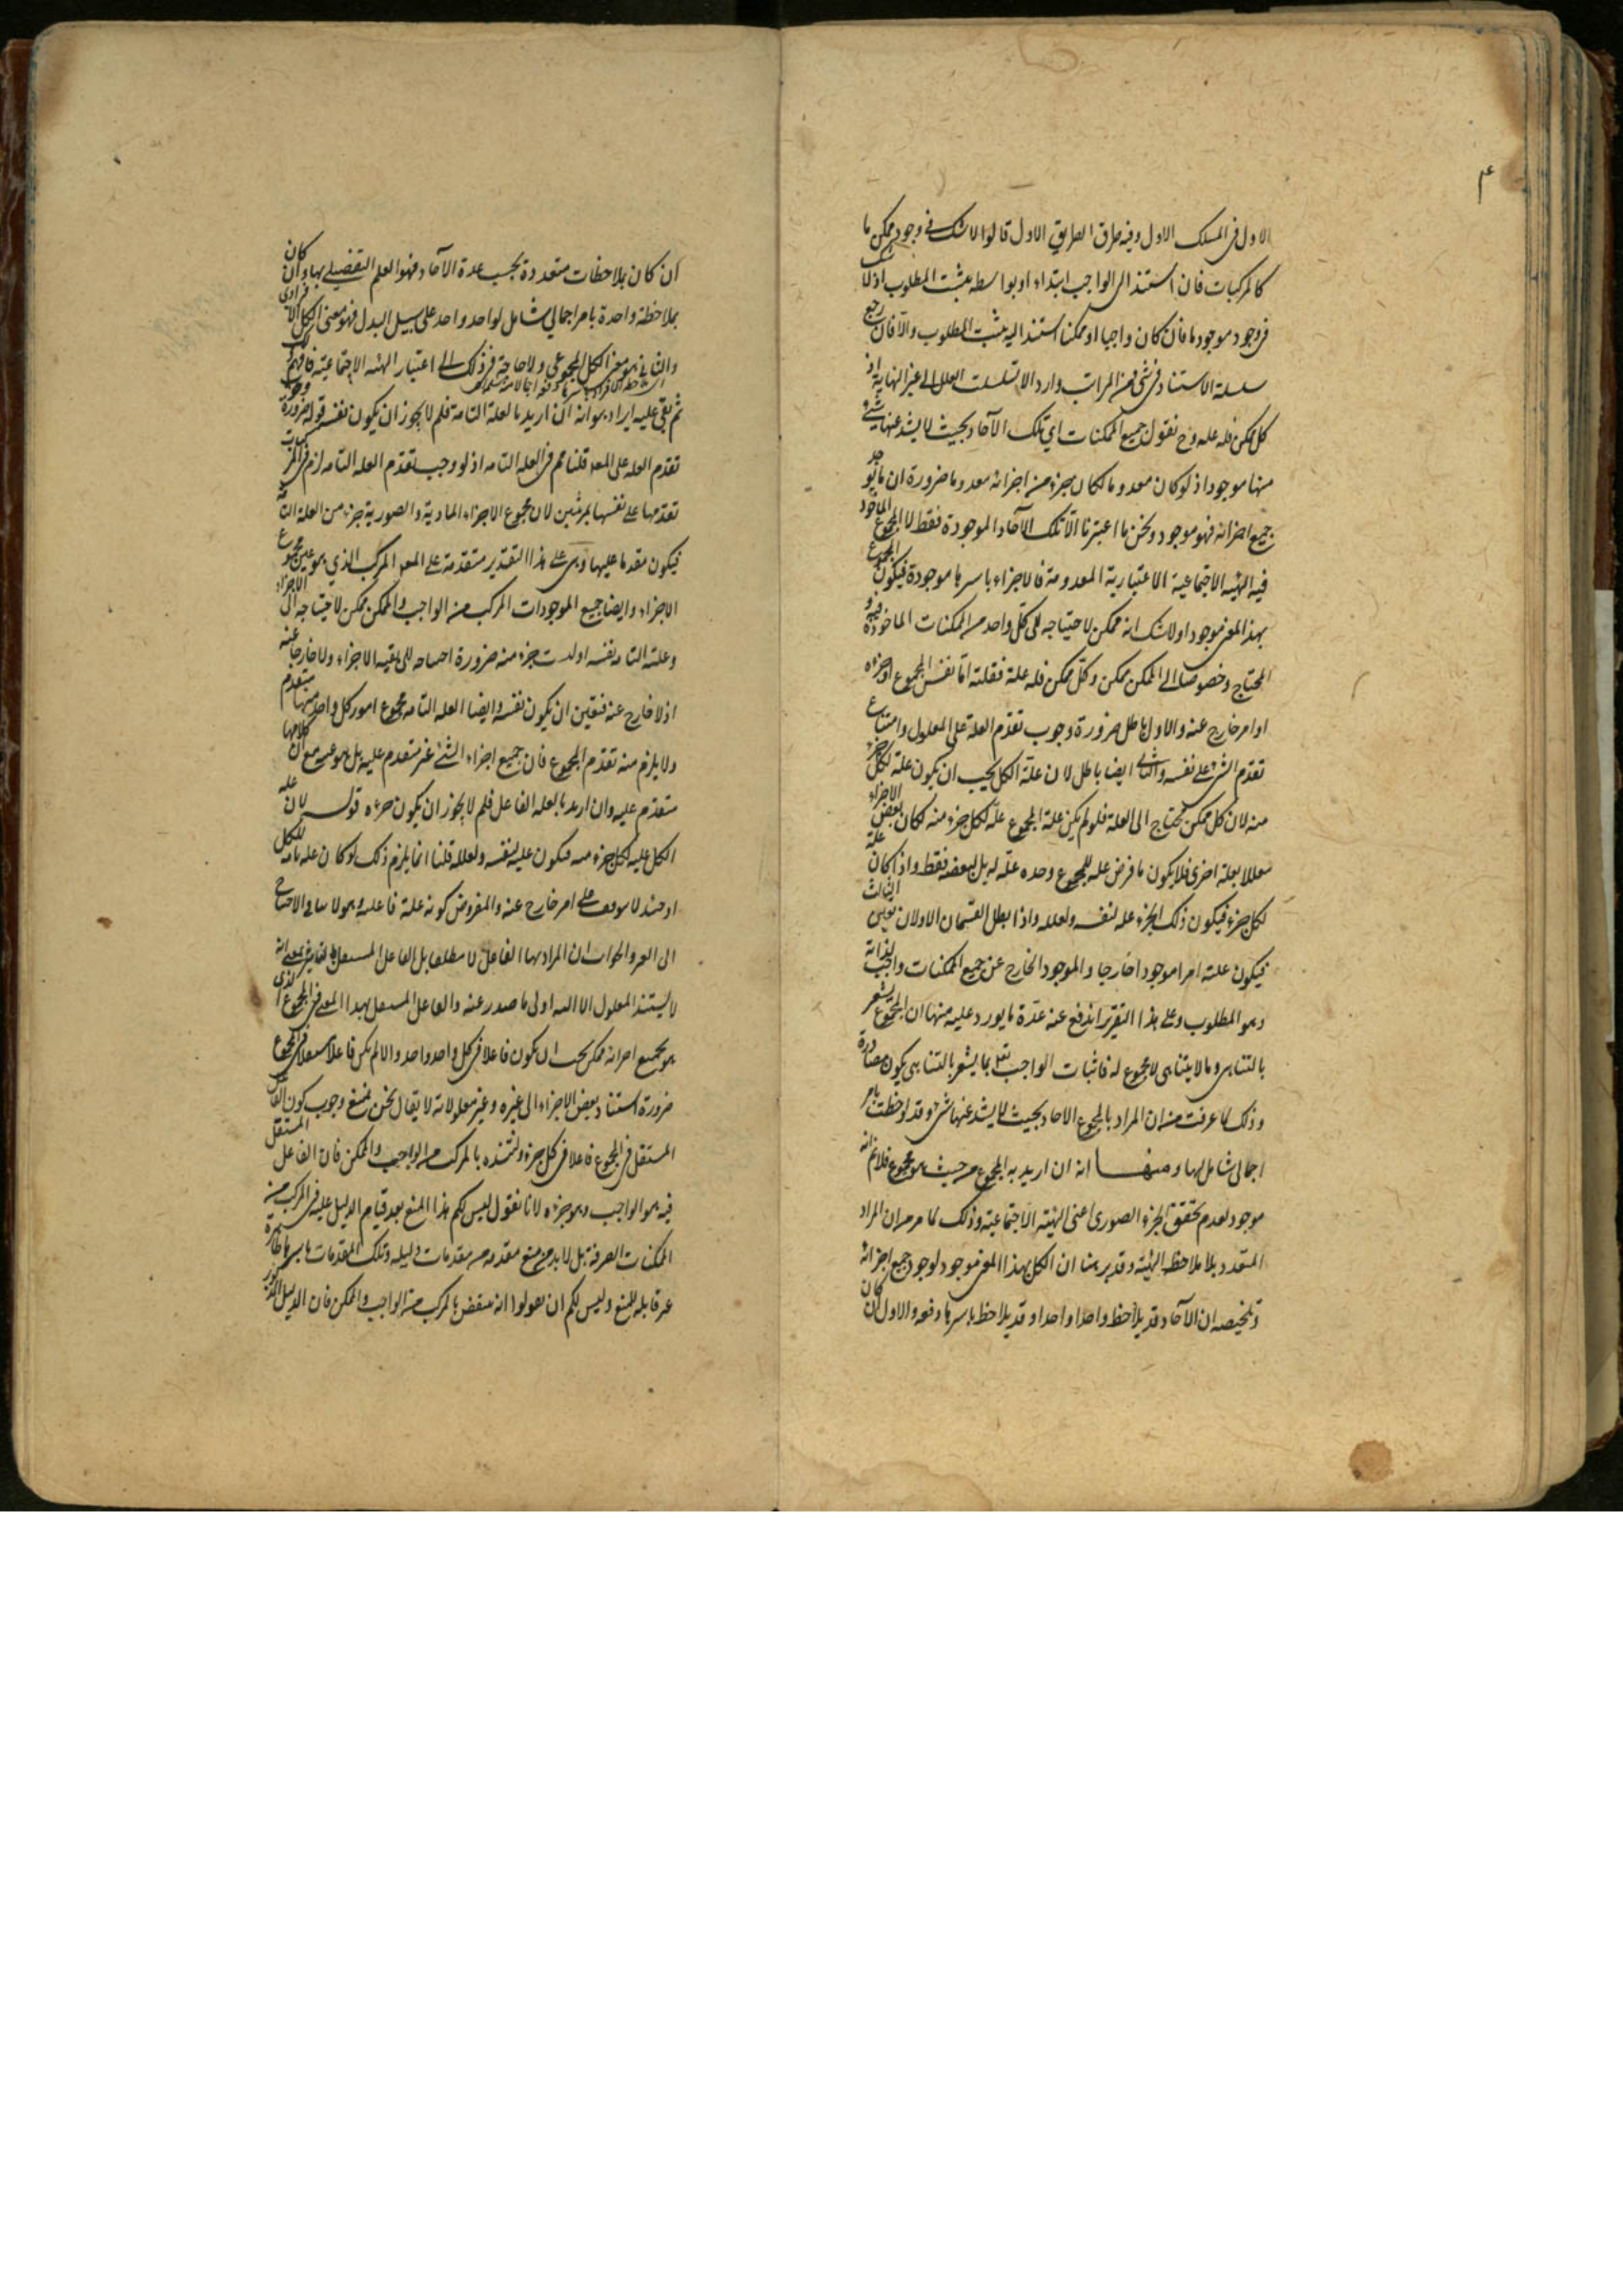 ۴
الاول فی المسلک الاول وفیه طرق الطریق الاول قالوا لا شک فی وجود ممکن ما
کالمرکبات فان استند الی الواجب ابتداء او بواسطه یثبت المطلوب اذ لا شک
فی وجود موجود ما فان کان واجبا او ممکنا استند الیه یثبت المطلوب والا فان رجع
سلسلة الاستناد فی شیء من المراتب دار والا تسلست العلل الی غیر النهایة اذ
کل ممکن فله علة وح نقول جمیع الممکنات ای تلک الآحاد بحیث لا یشذ عنها شیء
منها موجود اذ لو کان معدوما لکان جزء من اجزائه معدوما ضرورة ان ما یوجد
جمیع اجزائه فهو موجود ونحن ما اعتبرنا الا تلک الآحاد الموجودة فقط لا المجموع الماخوذ
فیه الهیئه الاجتماعیة الاعتباریة المعدومة فالاجزاء باسرها موجودة فیکون المجموع
بهذا المعنی موجودا ولا شک انه ممکن لاحتیاجه الی کل واحد من الممکنات الماخوذة فیه و
المحتاج وخصوصا الی الممکن ممکن وکل ممکن فله علة فعلته اما نفس المجموع او جزءه
او امر خارج عنه والاول باطل ضرورة وجوب تقدم العلة علی المعلول وامتناع
تقدم الشیء علی نفسه والثانی ایضا باطل لان علة الکل یجب ان یکون علة لکل جزء
منه لان کل ممکن یحتاج الی العلة فلو لم یکن علة المجموع علة لکل جزء منه لکان بعض الاجزاء
معللا بعلة اخری فلا یکون ما فرض علة للمجموع وحده علة له بل لبعضه فقط واذا کان علة
لکل جزء فیکون ذلک الجزء علة لنفسه ولعلله واذا بطل القسمان الاولان تعین الثالث
فیکون علته امرا موجودا خارجا والموجود الخارج عن جمیع الممکنات واجب لذاته
وهو المطلوب وعلی هذا التقریر اندفع عنه عدة ما یورد علیه منها ان المجموع یشعر
بالتناهی وما لا یتناهی لا مجموع له فاثبات الواجب تعالی بما یشعر بالتناهی یکون مصادرة
وذلک لما عرفت من ان المراد بالمجموع الاحاد بحیث لا یشذ عنها شیء وقد لوحظت بامر
اجمالی شامل لها ومنها انه ان ارید به المجموع من حیث هو مجموع فلا نم انه
موجود لعدم تحقق الجزء الصوری اعنی الهیئة الاجتماعیة وذلک لما مر من ان المراد
المتعدد بلا ملاحظه الهیئة وقد برهنا ان الکل بهذا المعنی موجود لوجود جمیع اجزائه
وتلخیصه ان الآحاد قد یلاحظ واحدا واحدا وقد یلاحظ باسرها دفعه والاول ان کان
ان کان بملاحظات متعددة بحسب عدة الآحاد فهو العلم التفصیلی بها وان کان
بملاحظة واحدة بامر اجمالی شامل لواحد واحد علی سبیل البدل فهو معنی الکل الافرادی
والثانی هو معنی الکل المجموعی ولا حاجة فی ذلک الی اعتبار الهیئه الاجتماعیة فافهم
ثم بقی علیه ایراد هو انه ان ارید بالعلة التامة فلم لا یجوز ان یکون نفسه قوله ضرورة وجوب
تقدم العلة علی المعلول قلنا مم فی العلة التامة اذ لو وجب تقدم العلة التامة لزم فی المرکبات
تقدمها علی نفسها بمرتبتین لان مجموع الاجزاء المادیة والصوریة جزء من العلة التامة
فیکون مقدما علیها وهی علی هذا التقدیر متقدمة علی المعلول المرکب الذی هو عین مجموع
الاجزاء وایضا جمیع الموجودات المرکب من الواجب والممکن ممکن لاحتیاجه الی الاجزاء
وعلته التامة نفسه اذ لیست جزء منه ضرورة احتیاجه الی بقیة الاجزاء ولا خارجا عنه
اذ لا خارج عنه فتعین ان یکون نفسه وایضا العلة التامة مجموع امور کل واحد منها متقدم
ولا یلزم منه تقدم المجموع فان جمیع اجزاء الشیء غیر متقدم علیه بل هو عینه مع ان کلا منها
متقدم علیه وان ارید بالعلة الفاعل فلم لا یجوز ان یکون جزءه قوله لان علة
الکل علة لکل جزء منه فیکون علة لنفسه ولعلله قلنا انما یلزم ذلک لو کان علة تامة للکل
او حینئذ لا یتوقف علی امر خارج عنه والمفروض کونه علة فاعلیة وهو لا ینافی الاحتیاج
الی الغیر والجواب ان المراد بها الفاعل لا مطلقا بل الفاعل المستقل بالتاثیر بمعنی انه
لا یستند المعلول الا الیه او الی ما صدر عنه والفاعل المستقل بهذا المعنی فی المجموع الذی
هو بجمیع اجزائه ممکن یجب ان یکون فاعلا فی کل واحد واحد والا لم یکن فاعلا مستقلا فی المجموع
ضرورة استناد بعض الاجزاء الی غیره وغیر معلولاته لا یقال نحن نمنع وجوب کون الفاعل
المستقل فی المجموع فاعلا فی کل جزء وسنده بالمرکب من الواجب والممکن فان الفاعل المستقل
فیه هو الواجب وهو جزءه لانا نقول لیس لکم هذا المنع بعد قیام الدلیل علیه فی المرکب من
الممکنات الصرفة بل لا بد من منع مقدمة من مقدمات دلیله وتلک المقدمات باسرها ظاهرة
غیر قابله للمنع ولیس لکم ان یقولوا انه منقض بالمرکب من الواجب والممکن فان الدلیل المذکور